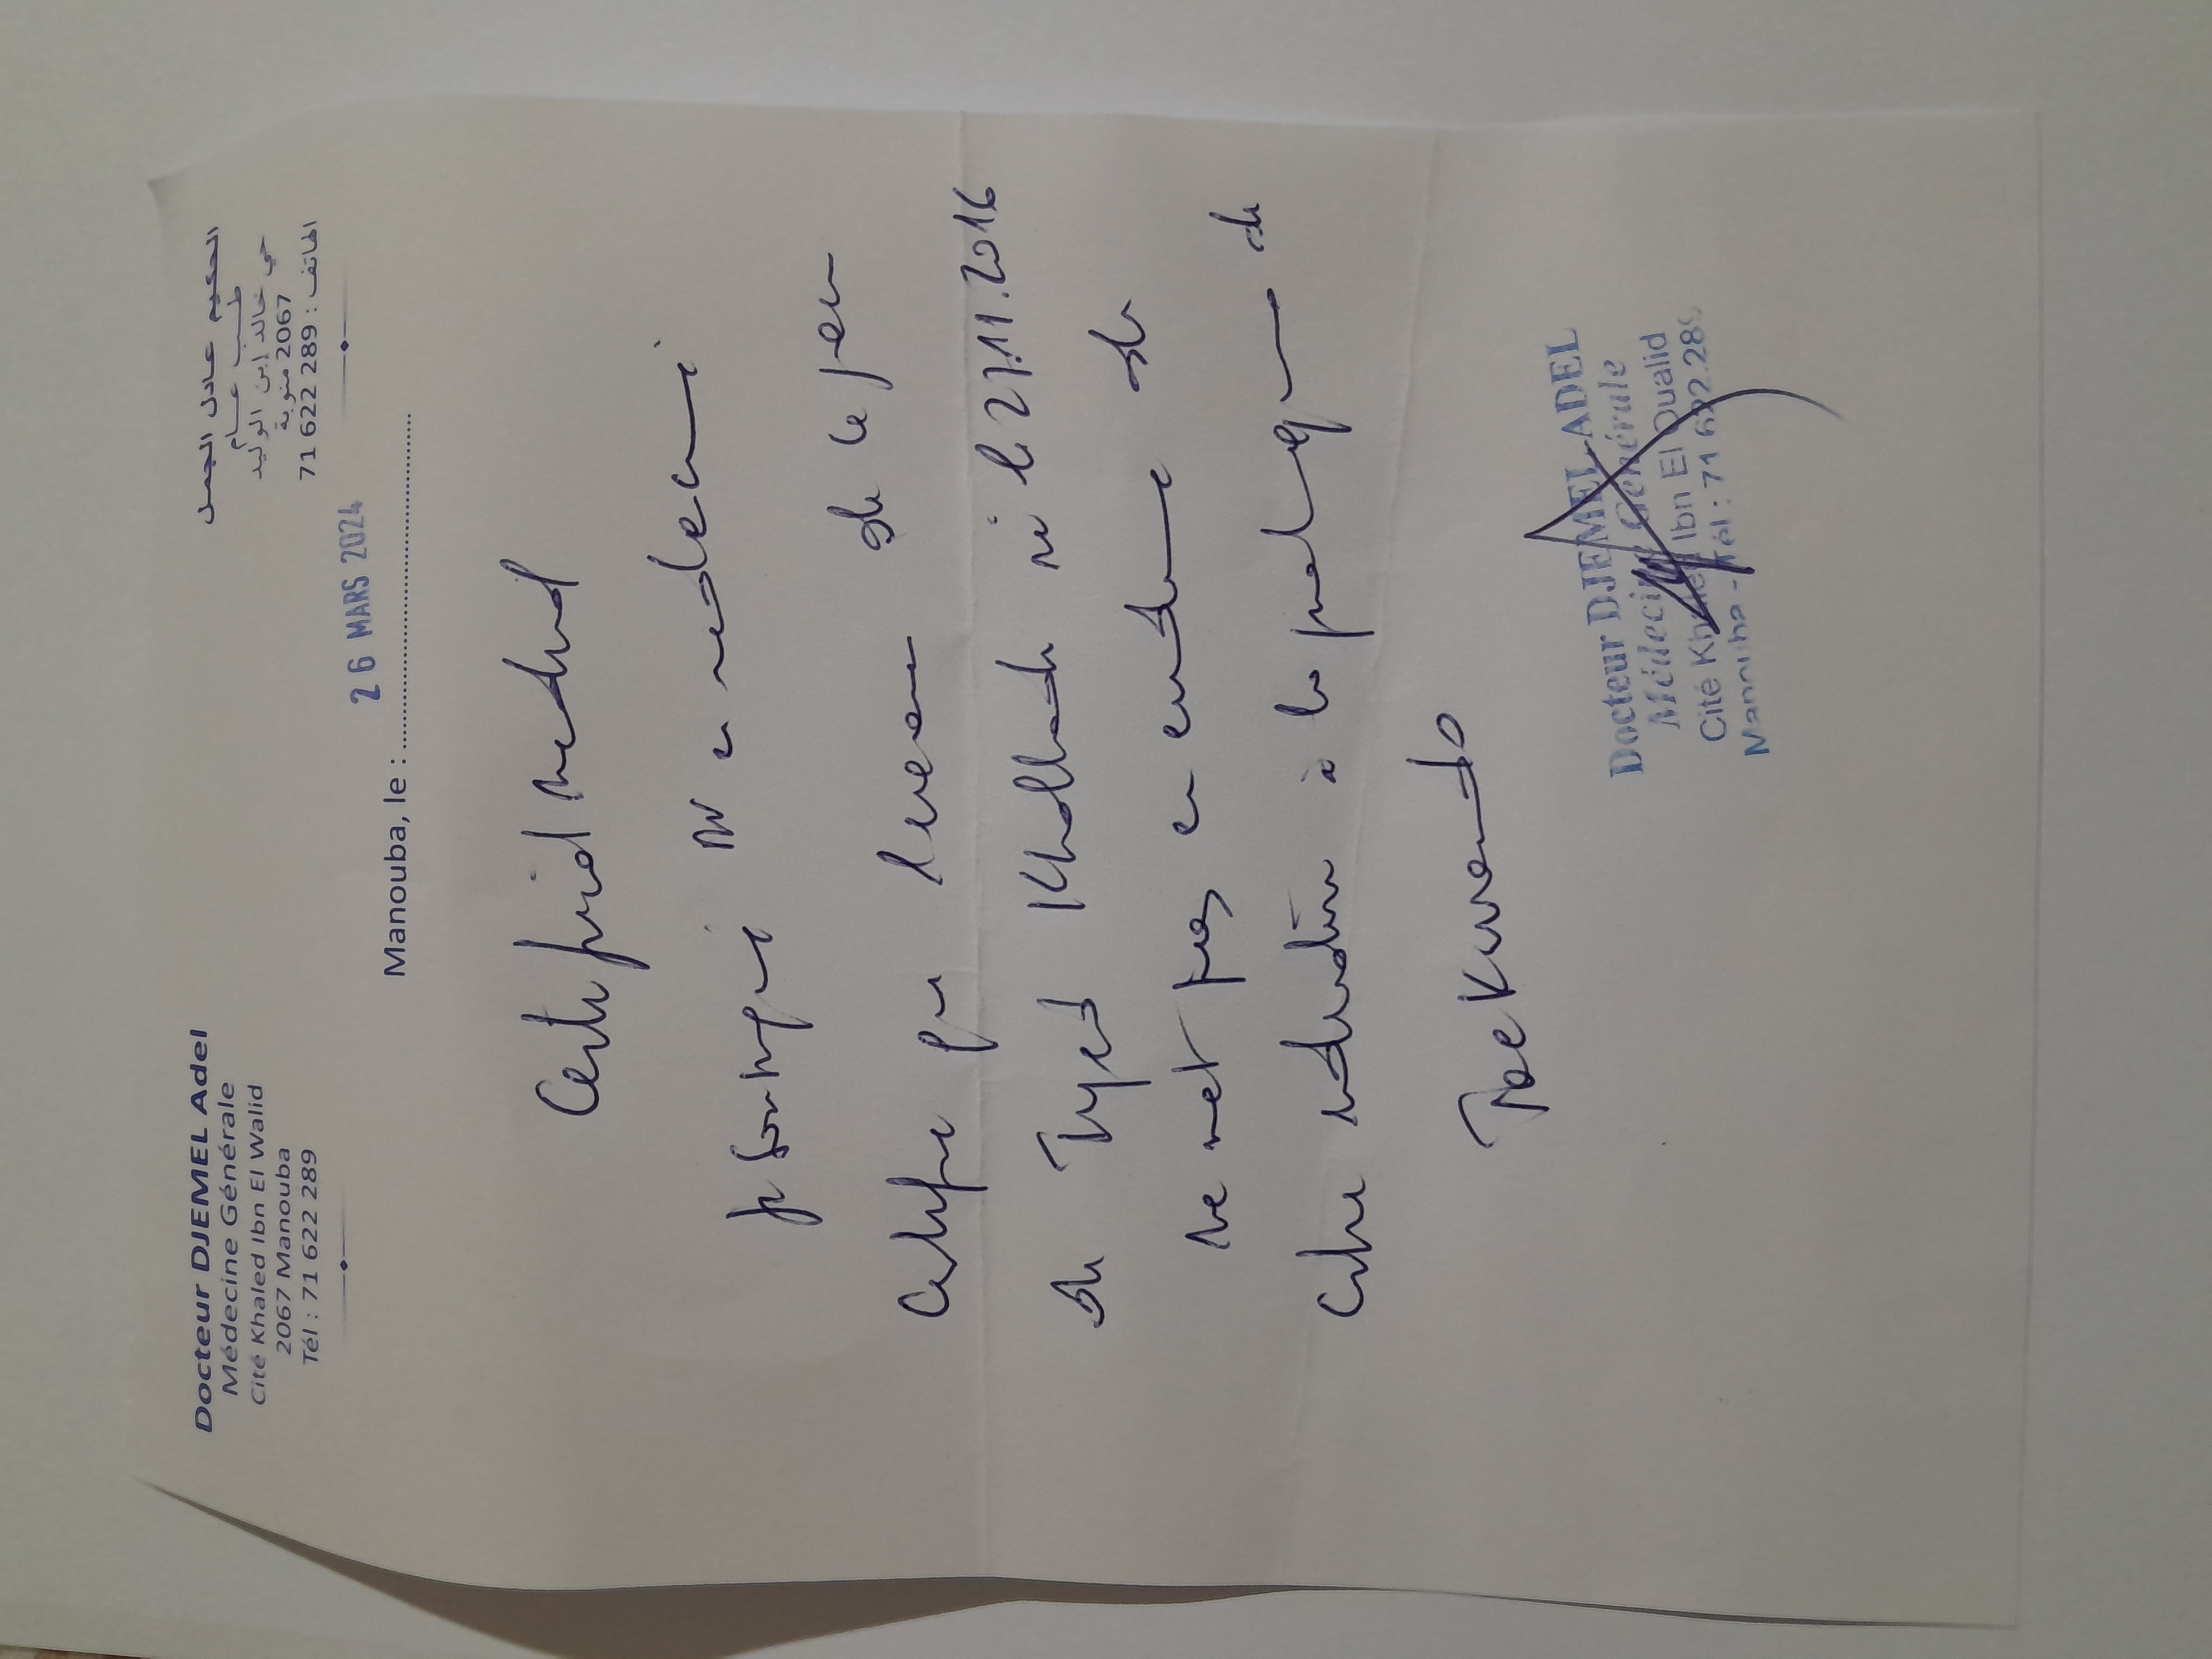 Docteur DJEMEL Adel
Médecine Générale
Cité Khaled Ibn El Walid
2067 Manouba
Tél : 71 622 289
الحكيم عادل الجمل
طب عام
حي خالد ابن الوليد
2067 منوبة
الهاتف : 71 622 289
Manouba, le : 26 MARS 2024
Certificat médical
Je soussigné Dr en médecine
Certifie que l'examen de
de Tyed né le 27.11.2016
ne met pas en évidence de
contre indication à la pratique de
Taekwondo
Docteur DJEMEL ADEL
Médecine Générale
Cité Khaled Ibn El Oualid
Manouba - Tél : 71 622.289